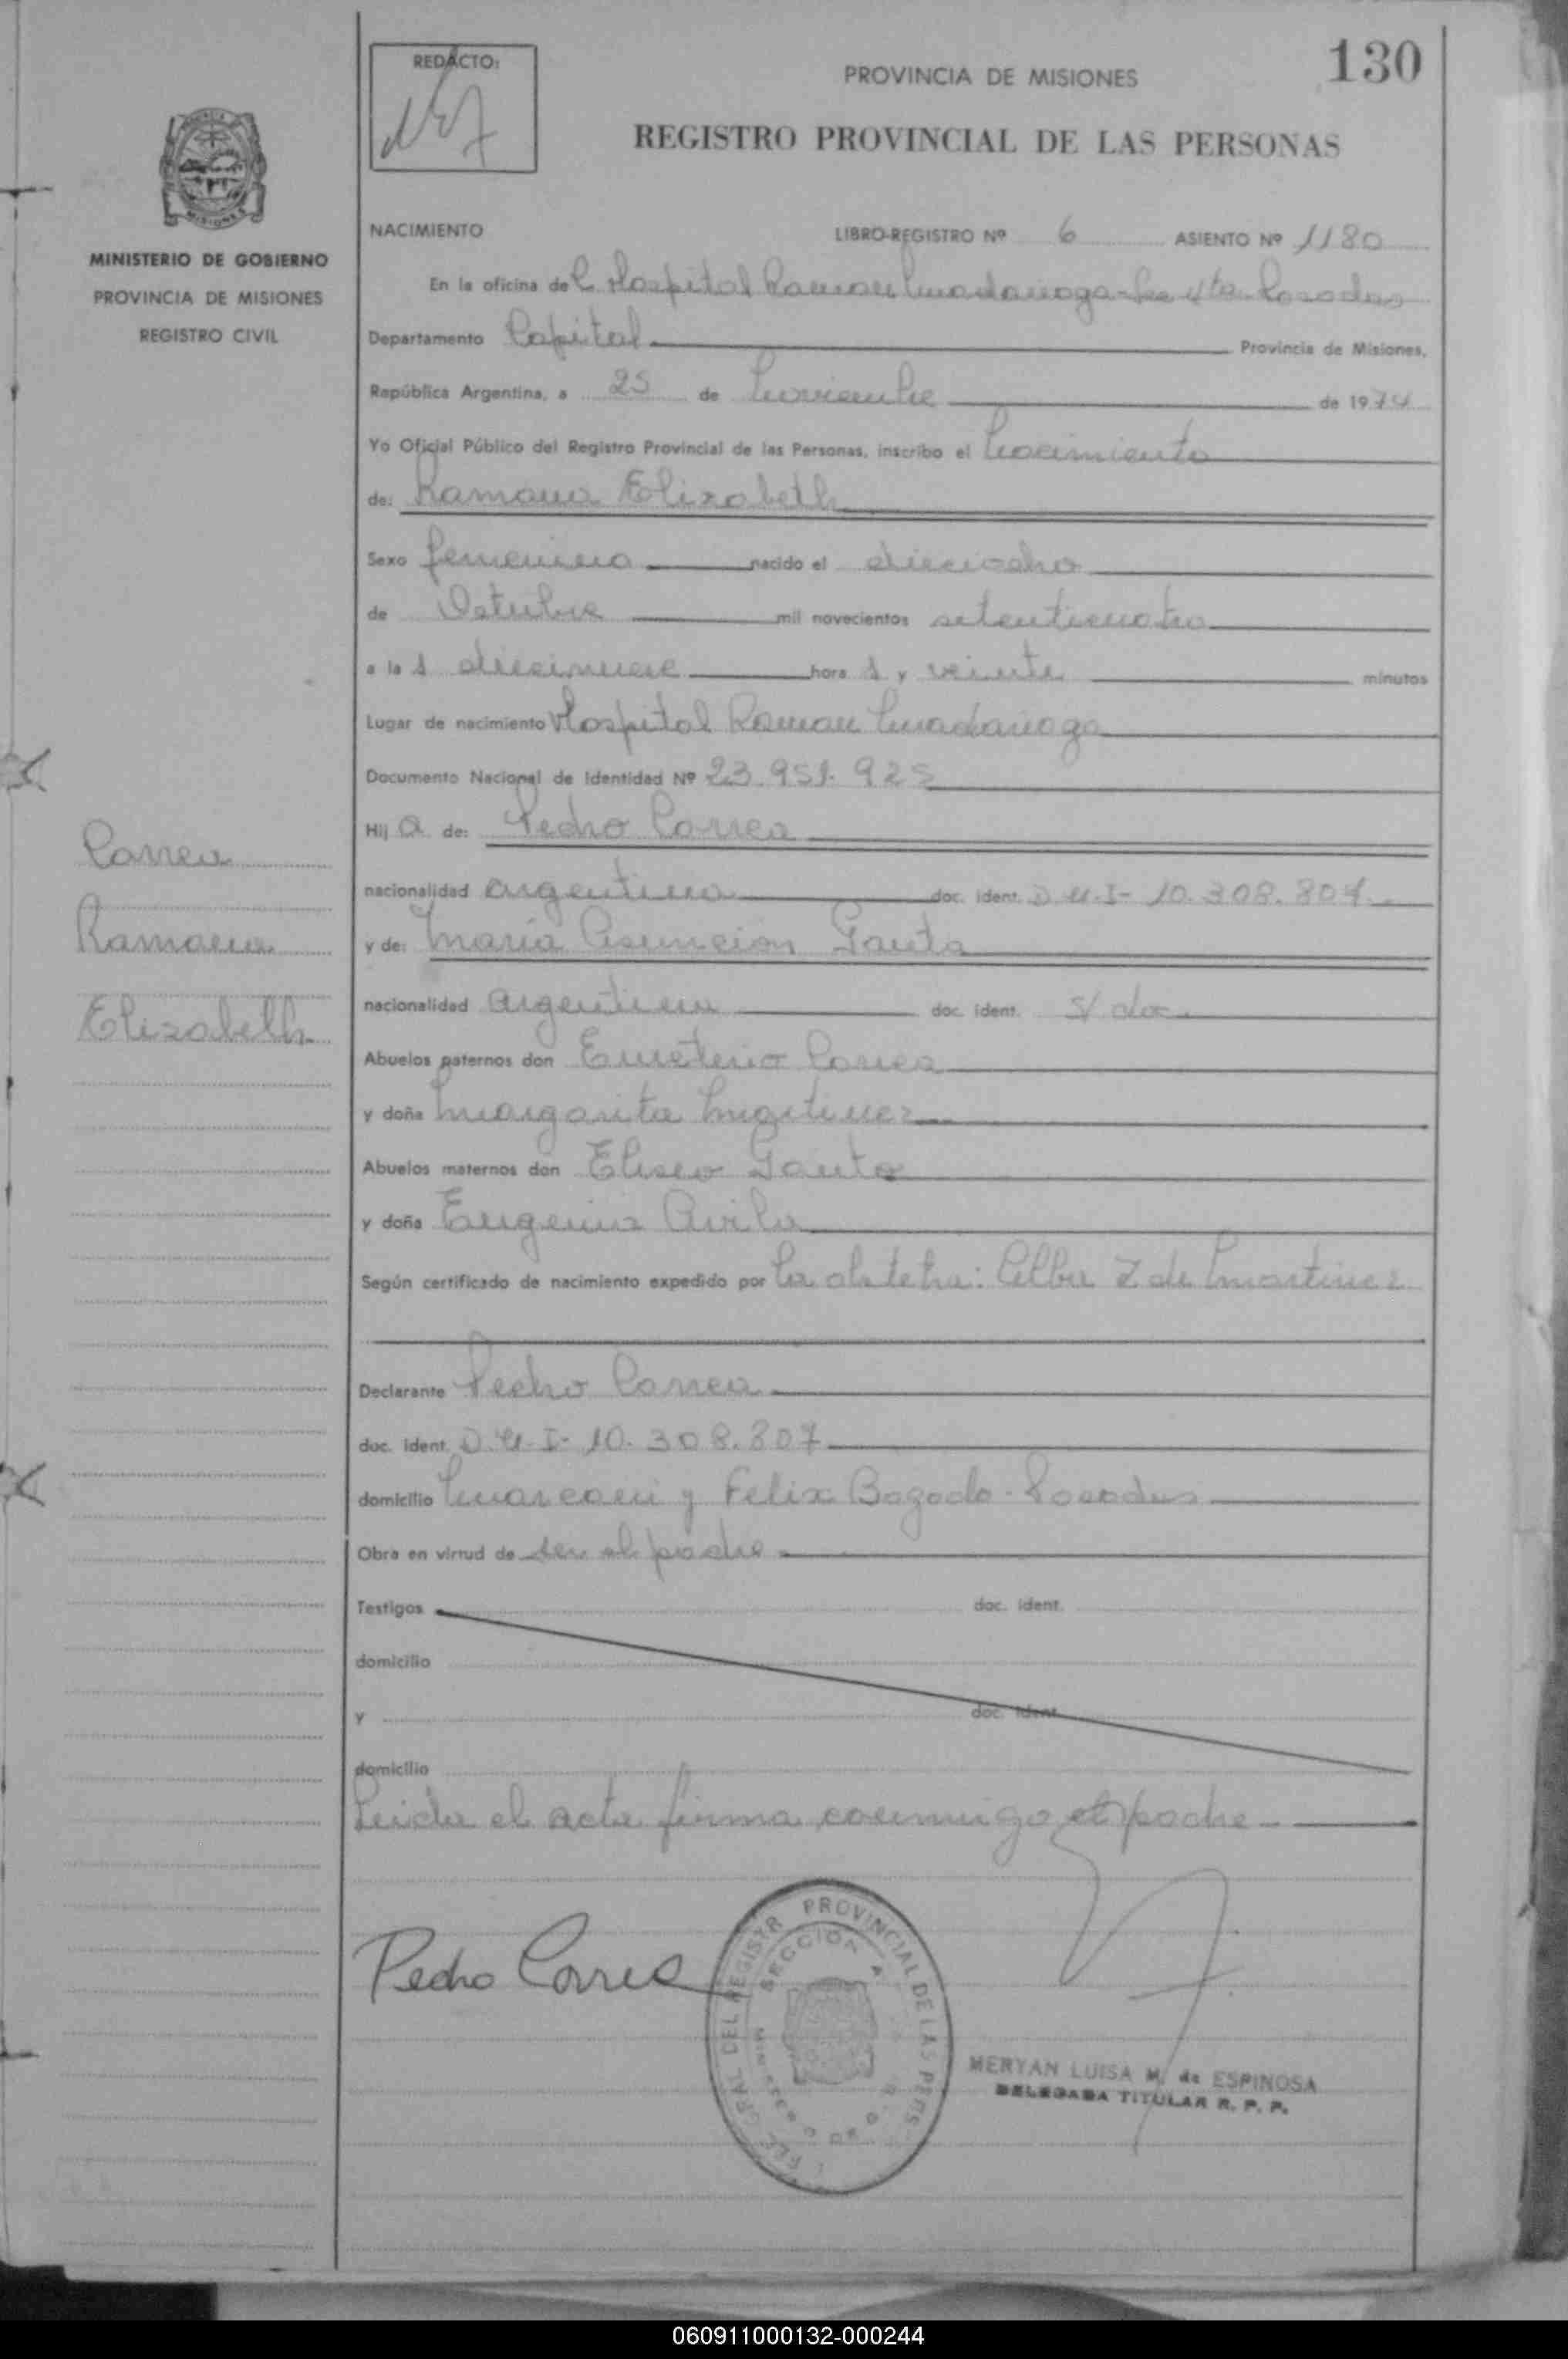 130
REDACTO:
PROVINCIA DE MISIONES
REGISTRO PROVINCIAL DE LAS PERSONAS
MISIONES
MINISTERIO DE GOBIERNO
PROVINCIA DE MISIONES
REGISTRO CIVIL
NACIMIENTO LIBRO-REGISTRO Nº 6 ASIENTO Nº 1180
En la oficina del Hospital Ramon Madariaga - Posadas
Departamento Capital Provincia de Misiones,
República Argentina, a 25 de Noviembre de 1974
Yo Oficial Público del Registro Provincial de las Personas, inscribo el Nacimiento
de: Ramona Elizabeth
Sexo femenino nacido el dieciocho
de Octubre mil novecientos setenticuatro
a la s diecinueve hora s y veinte minutos
Lugar de nacimiento Hospital Ramon Madariaga
Documento Nacional de Identidad Nº 23.951.925
Hij a de: Pedro Correa
nacionalidad argentina doc. ident. D.U.I- 10.308.807
y de: Maria Asuncion Gauto
nacionalidad argentina doc. ident. s/ doc.
Abuelos paternos don Emeterio Correa
y doña Margarita Martinez
Abuelos maternos don Eliseo Gauto
y doña Eugenia Avila
Según certificado de nacimiento expedido por La obstetra: Alba Z de Martinez
Declarante Pedro Correa
doc. ident. D.U.I- 10.308.807
domicilio Marconi y Felix Bogado - Posadas
Obra en virtud de ser el padre
Testigos doc. ident.
domicilio
y doc. ident.
domicilio
Leida el acta firma conmigo el padre
Correa
Ramona
Elizabeth
Pedro Correa
PROVINCIAL DE LAS PERS.
SECCION
MERYAN LUISA M. de ESPINOSA
DELEGADA TITULAR R. P. P.
060911000132-000244